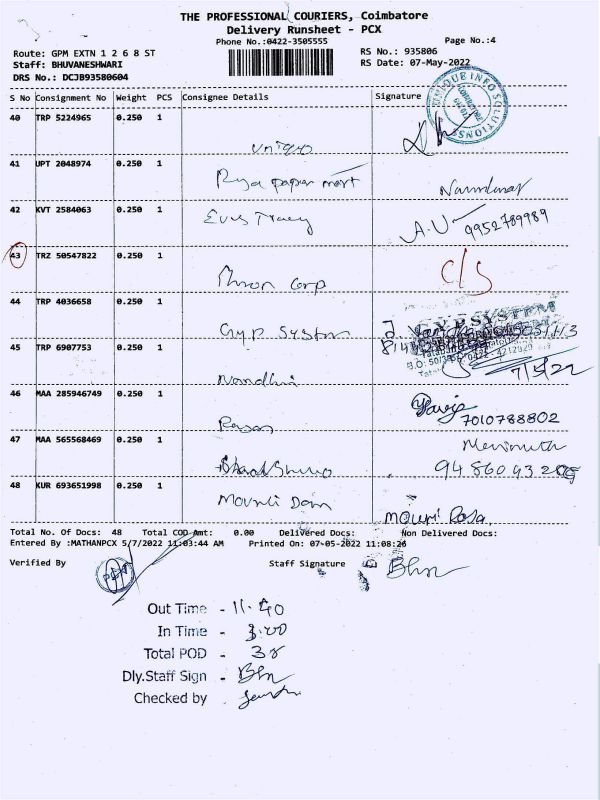 THE PROFESSIONAL COURIERS, Coimbatore
Delivery Runsheet - PCX
Phone No.:0422-3505555
Page No.:4
Route: GPM EXTN 1 2 6 8 ST
RS No.: 935806
Staff: BHUVANESHWARI
RS Date: 07-May-2022
DRS No.: DCJB93580604
UNIQUE INFO SOLUTIONS
S No Consignment No Weight PCS Consignee Details Signature
40 TRP 5224965 0.250 1
41 UPT 2048974 0.250 1
Priya paper mart
42 KVT 2584063 0.250 1
A.U 9952789989
43 TRZ 50547822 0.250 1
Corp
C/S
44 TRP 4036658 0.250 1
Gyp System
GYP SYSTEM
45 TRP 6907753 0.250 1
Nandhini
7/5/22
46 MAA 285946749 0.250 1
7010788802
47 MAA 565568469 0.250 1
48 KUR 693651998 0.250 1
Total No. Of Docs: 48 Total COD Amt: 0.00 Delivered Docs: Non Delivered Docs:
Entered By :MATHANPCX 5/7/2022 11:03:44 AM Printed On: 07-05-2022 11:08:26
Verified By Staff Signature
Out Time - 11.40
In Time - 3.00
Total POD - 38
Dly.Staff Sign - Bhn
Checked by -